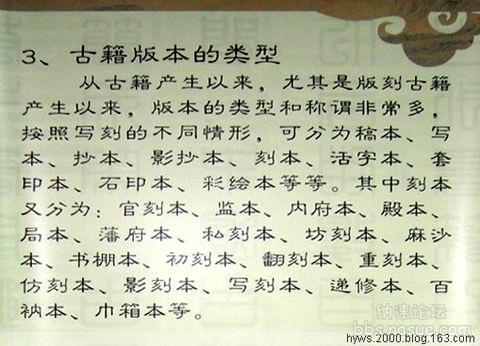 3、古籍版本的类型
从古籍产生以来，尤其是版刻古籍
产生以来，版本的类型和称谓非常多，
按照写刻的不同情形，可分为稿本、写
本、抄本、影抄本、刻本、活字本、套
印本、石印本、彩绘本等等。其中刻本
又分为：官刻本、监本、内府本、殿本、
局本、藩府本、私刻本、坊刻本、麻沙
本、书棚本、初刻本、翻刻本、重刻本、
仿刻本、影刻本、写刻本、递修本、百
衲本、巾箱本等。
纳速论坛
bbs.nasue.com
hyws.2000.blog.163.com